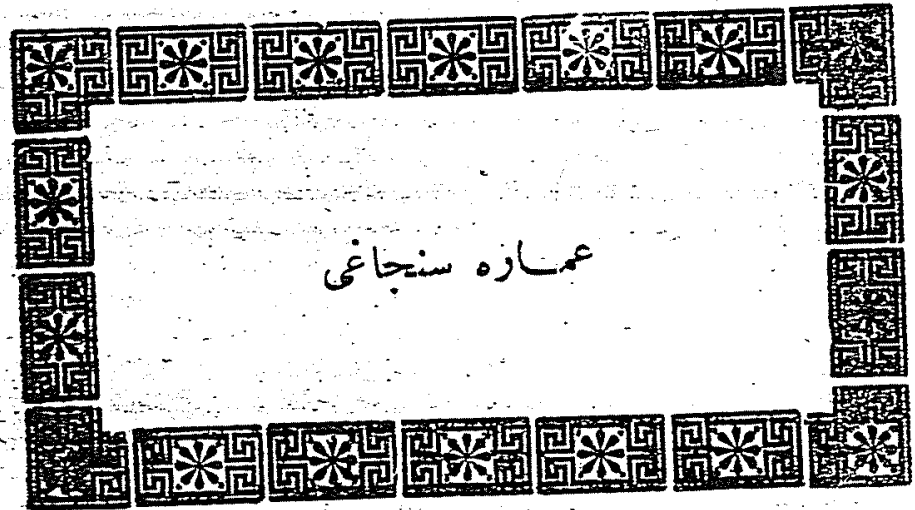 عماره سنجاغی